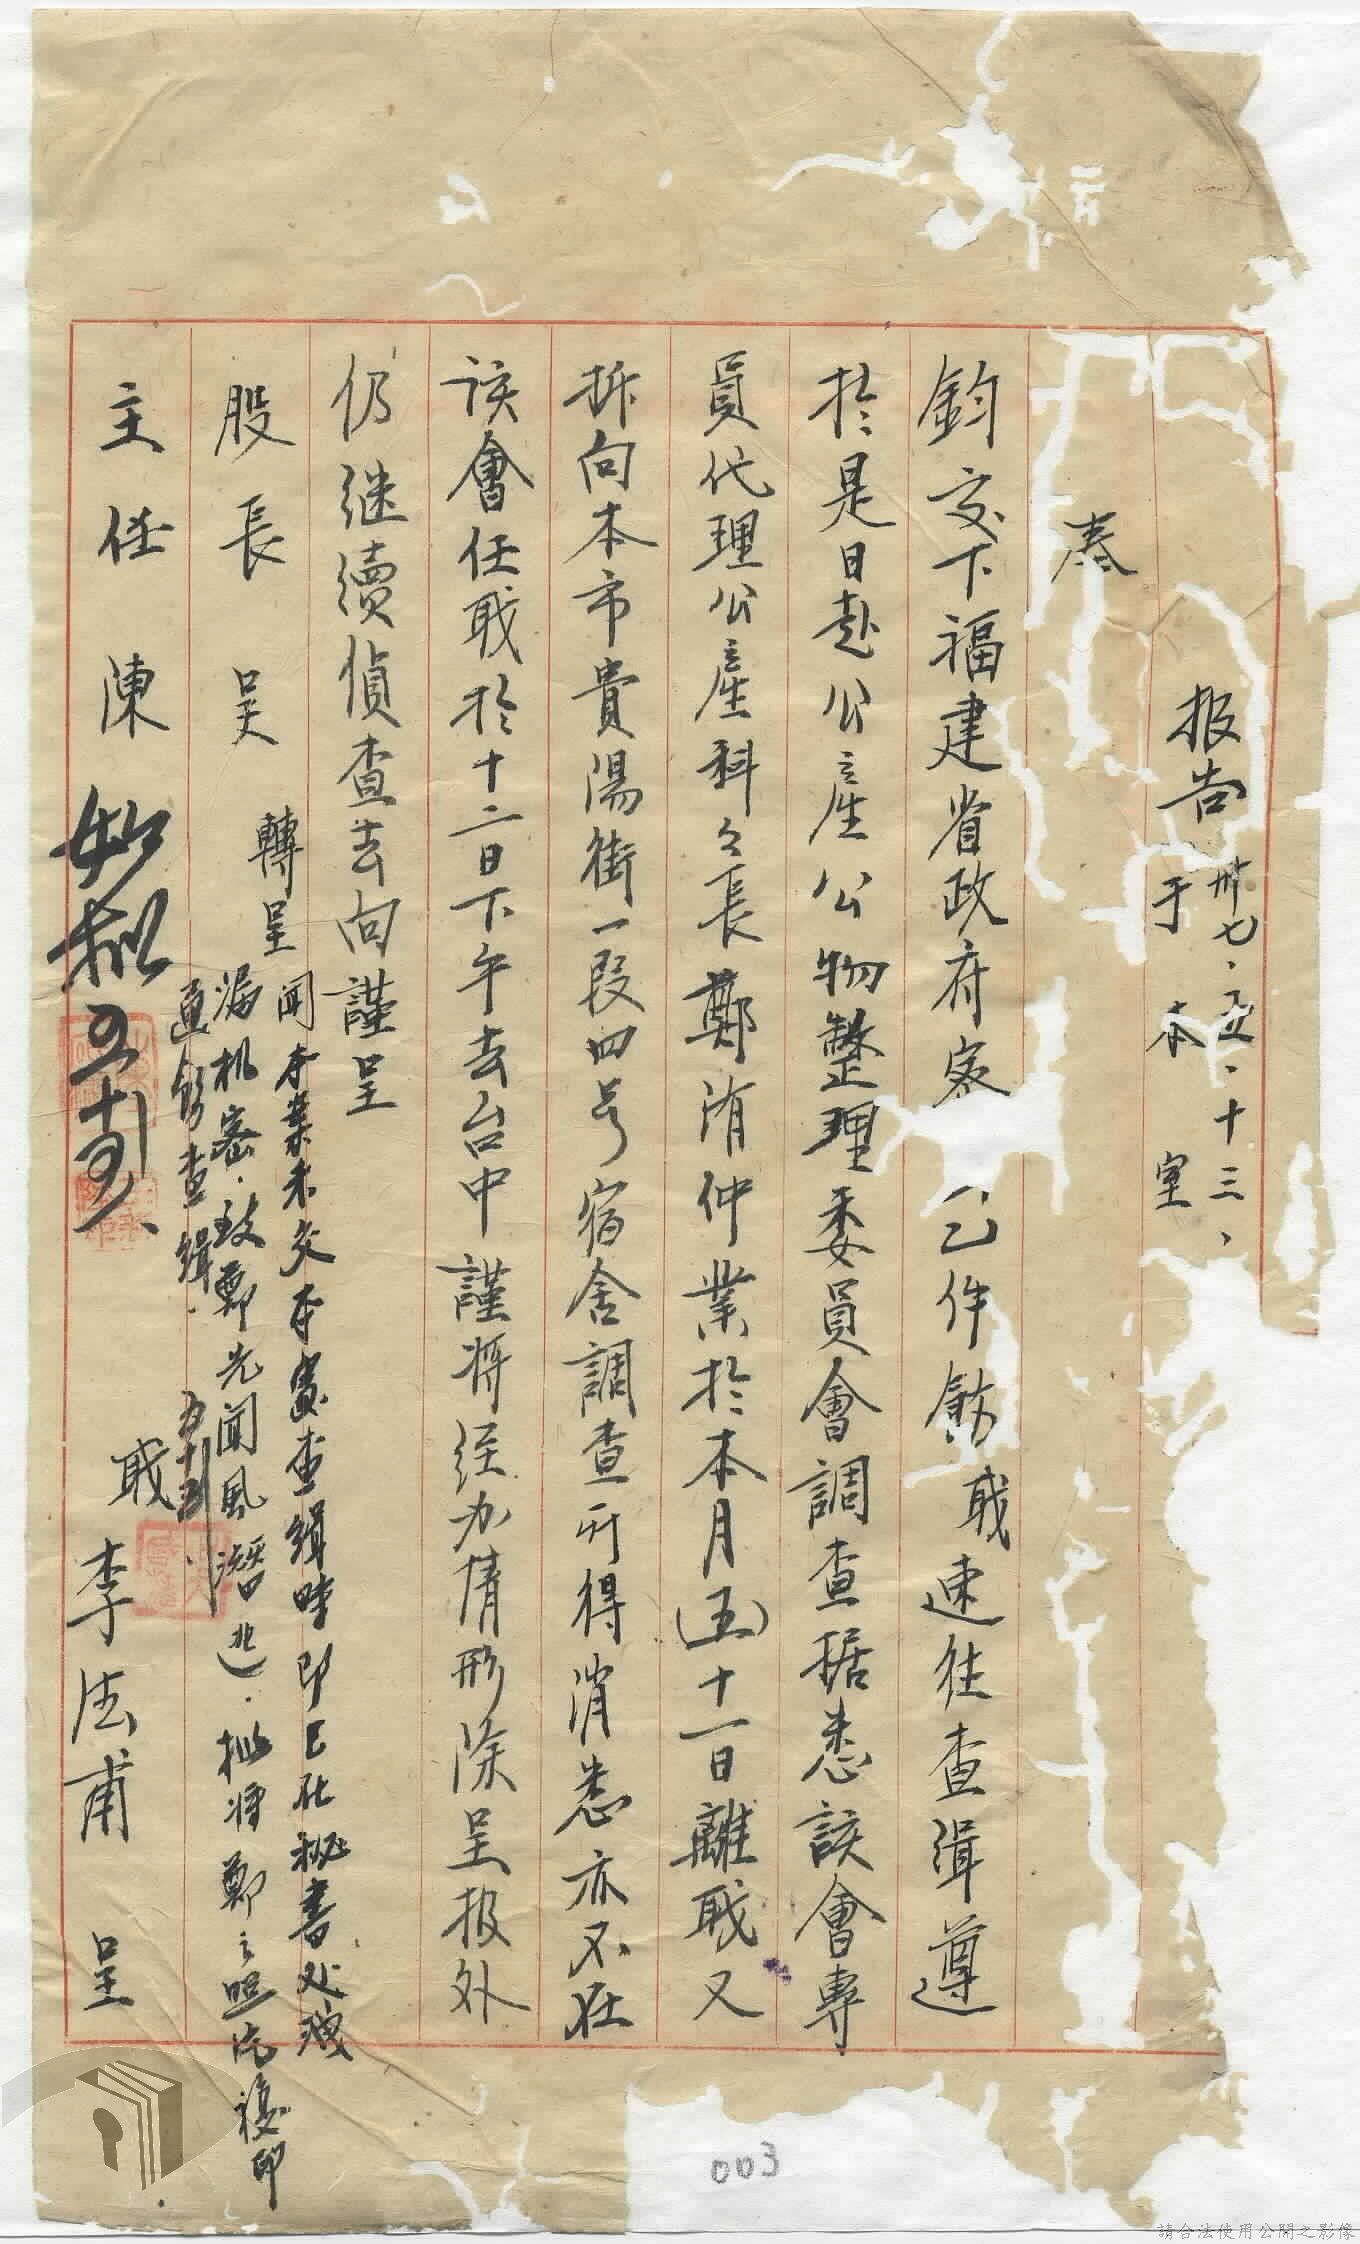 报告 卅七、五、十三、
于 本 室
奉
鈞交下福建省政府密 乙件飭职速往查缉遵
於是日赴公產公物整理委員會調查据悉該會專
員代理公產科々長鄭洧仲業於本月(五)十一日離职又
拆向本市貴陽街一段四号宿舍調查所得消悉亦不在
該會任职於十二日下午去台中謹將经办情形除呈报外
仍继續偵查去向謹呈
股長 吴 轉呈
主任 陳
职 李法甫 呈
闻本案未交本室查缉時即已在秘書处洩
漏机密,致鄭先闻風潜逃。拟将鄭之照片複印
通飭查缉.
003
請合法使用公開之影像